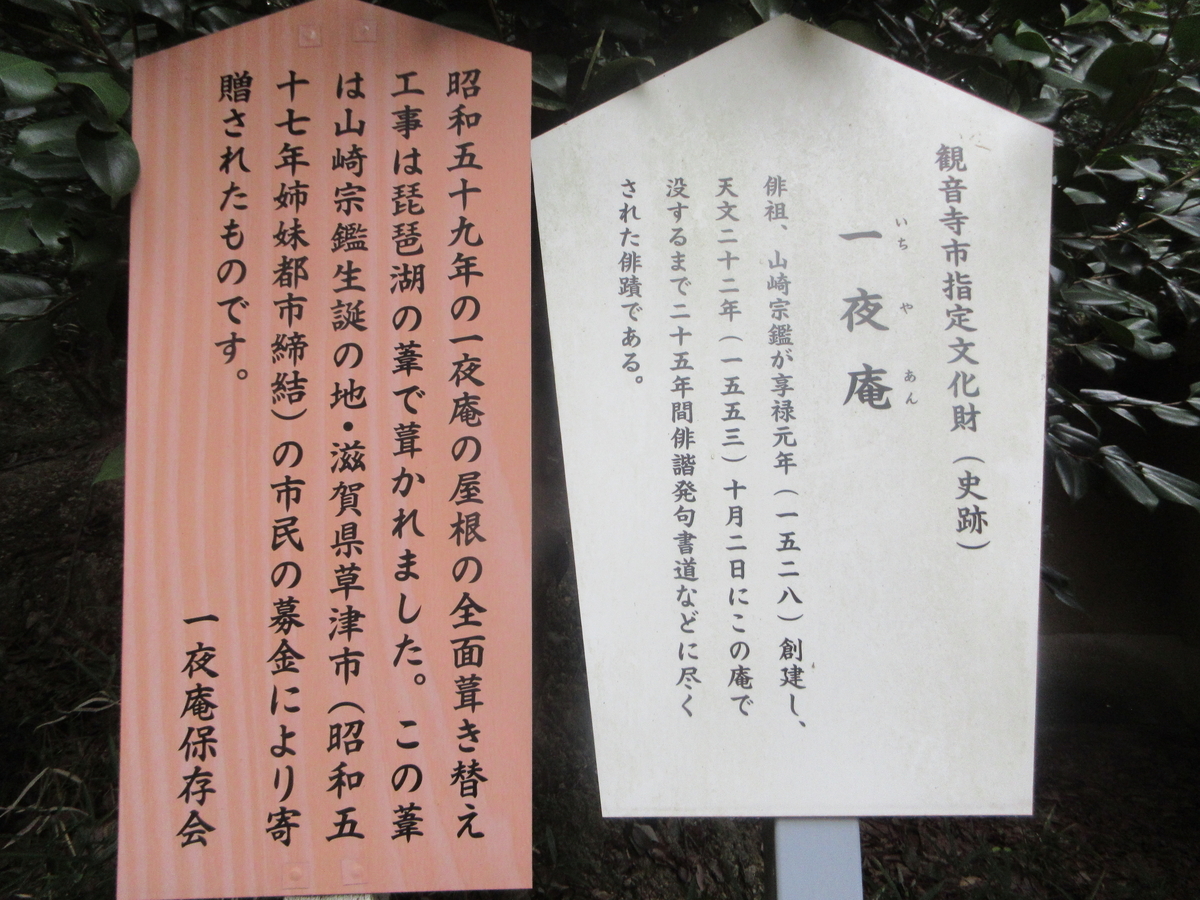 観音寺市指定文化財（史跡）
いち や あん
一夜庵
俳祖、山崎宗鑑が享禄元年（一五二八）創建し、
天文二十二年（一五五三）十月二日にこの庵で
没するまで二十五年間俳諧発句書道などに尽く
された俳蹟である。
昭和五十九年の一夜庵の屋根の全面葺き替え
工事は琵琶湖の葦で葺かれました。この葦
は山崎宗鑑生誕の地・滋賀県草津市（昭和五
十七年姉妹都市締結）の市民の募金により寄
贈されたものです。
一夜庵保存会